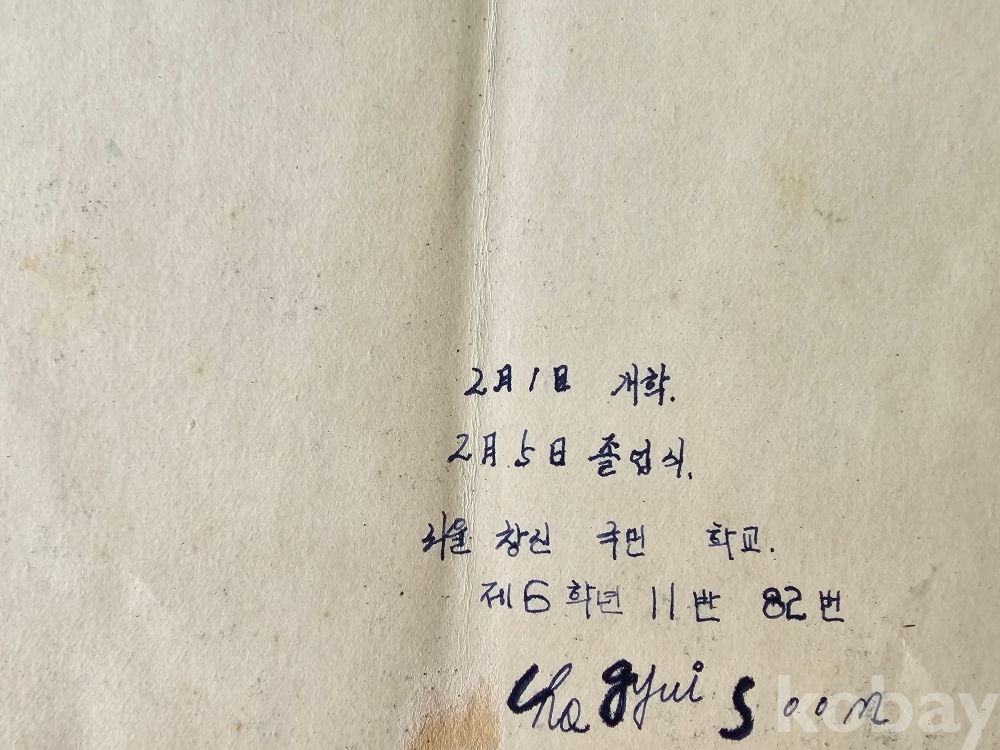 2月1日 개학.
2月5日 졸업식.
서울 창신 국민 학교.
제6학년 11반 82번
Cho gyui Soon
kobay